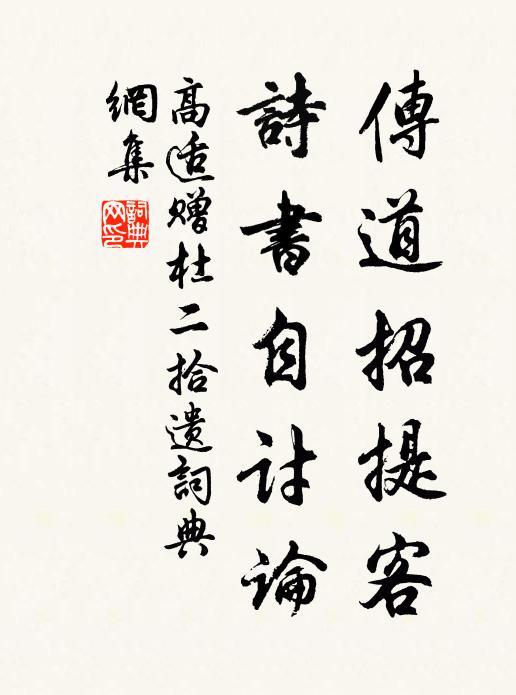 傳道招提客
詩書自討論
高适贈杜二拾遺詞典
網集
詞典網印